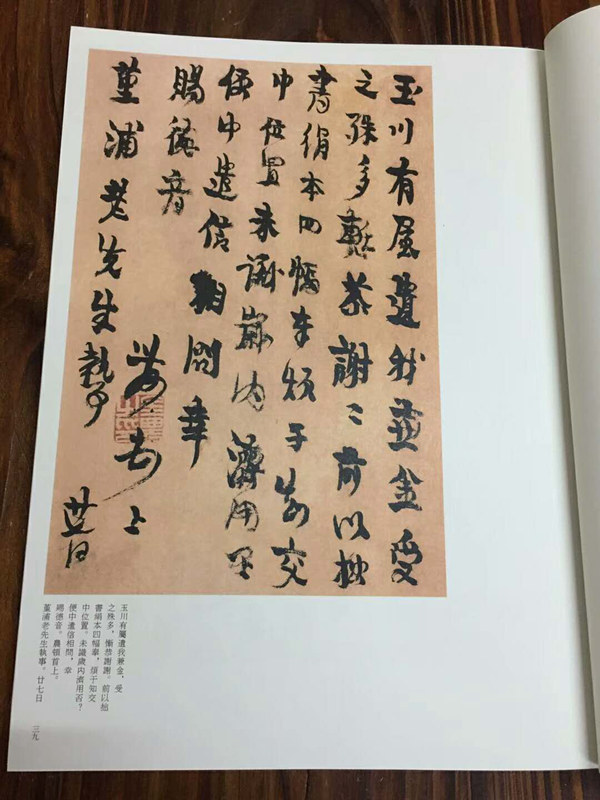 玉川有屬遺我兼金受
之殊多慙恭謝〻前以拙
書絹本四幅奉煩于知交
中位置未識歲内濟用不
便中遣信相問幸
賜德音
農頓首上
堇浦老先生執事
廿七日
玉川有屬遺我兼金，受
之殊多，慚恭謝謝。前以拙
書絹本四幅奉，煩于知交
中位置，未識歲内濟用否？
便中遣信相問，幸
賜德音。農頓首上。
堇浦老先生執事。廿七日
三九